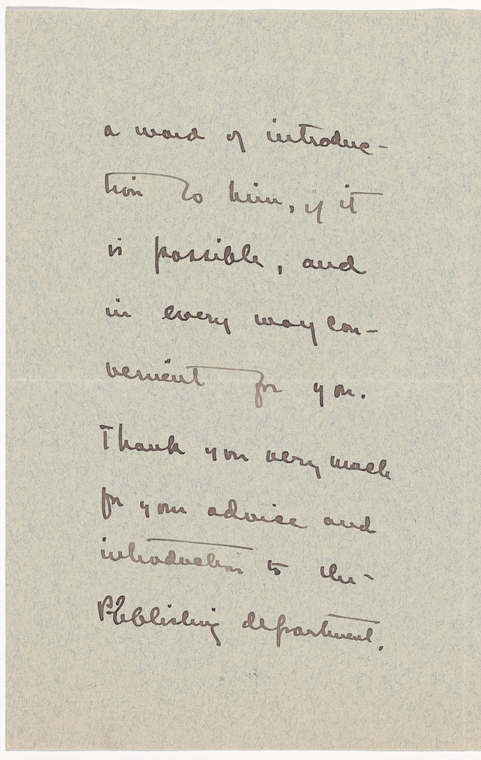 a word of introduc-
tion to him, if it
is possible, and
in every way con-
venient for you.
Thank you very much
for your advice and
introduction to the
Publishing department.